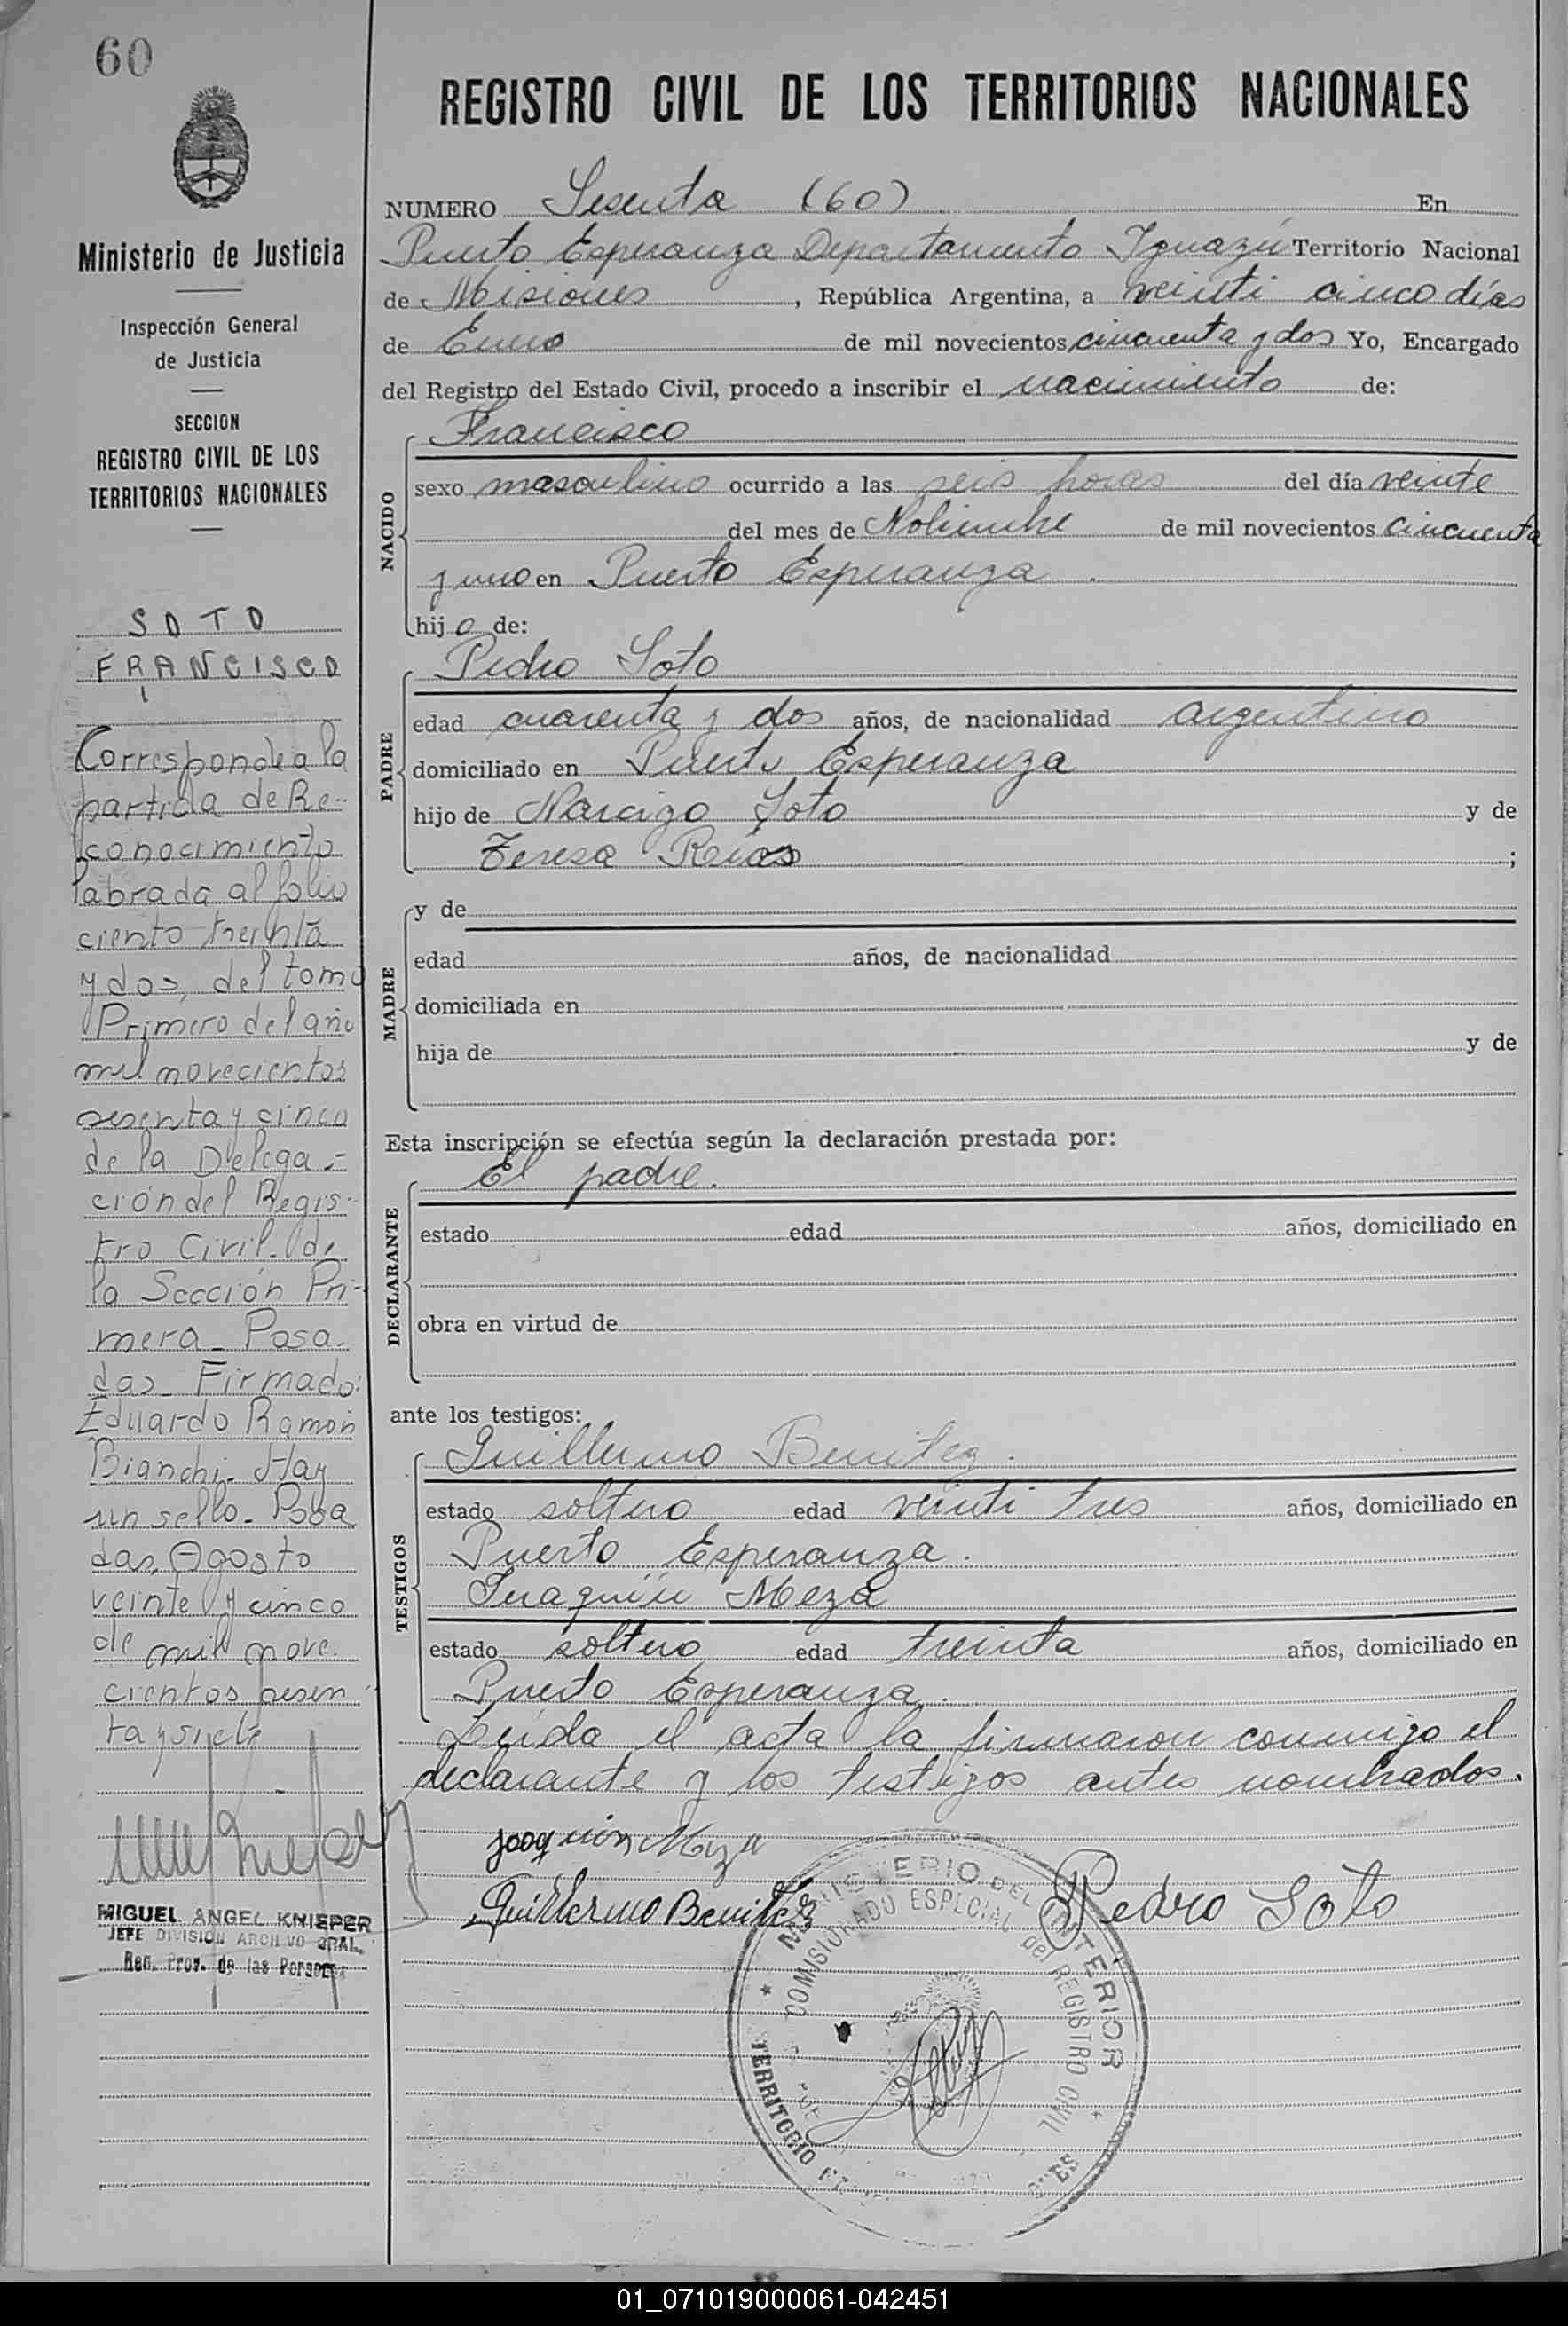 60
REGISTRO CIVIL DE LOS TERRITORIOS NACIONALES
Ministerio de Justicia
Inspección General
de Justicia
SECCION
REGISTRO CIVIL DE LOS
TERRITORIOS NACIONALES
SOTO
FRANCISCO
Corresponde a la
partida de Re-
conocimiento
labrada al folio
ciento treinta
y dos, del tomo
Primero del año
mil novecientos
sesenta y cinco
de la Delega-
ción del Regis-
tro Civil de
la Sección Pri-
mera - Posa-
das - Firmado:
Eduardo Ramon
Bianchi - Hay
un sello - Posa
das, Agosto
veinte y cinco
de mil nove-
cientos sesen-
ta y siete
MIGUEL ANGEL KNIEPER
JEFE DIVISION ARCHIVO GRAL.
Reg. Prov. de las Personas
NUMERO Sesenta (60) En
Puerto Esperanza Departamento Iguazú Territorio Nacional
de Misiones, República Argentina, a veinti cinco días
de Enero de mil novecientos cincuenta y dos Yo, Encargado
del Registro del Estado Civil, procedo a inscribir el nacimiento de:
NACIDO
Francisco
sexo masculino ocurrido a las seis horas del día veinte
del mes de Nobiembre de mil novecientos cincuenta
y uno en Puerto Esperanza.
hijo de:
PADRE
Pedro Soto
edad cuarenta y dos años, de nacionalidad argentino
domiciliado en Puerto Esperanza
hijo de Narcizo Soto y de
Teresa ;
MADRE
y de
edad años, de nacionalidad
domiciliada en
hija de y de
Esta inscripción se efectúa según la declaración prestada por:
DECLARANTE
El padre.
estado edad años, domiciliado en
obra en virtud de
ante los testigos:
TESTIGOS
Guillermo Benitez.
estado soltero edad veinti tres años, domiciliado en
Puerto Esperanza.
Juaquin Meza
estado soltero edad treinta años, domiciliado en
Puerto Esperanza.
Leida el acta la firmaron conmigo el
declarante y los testigos antes nombrados.
joaquin Meza
Guillermo Benitez
Pedro Soto
MINISTERIO DEL INTERIOR
COMISIONADO ESPECIAL del REGISTRO CIVIL
TERRITORIO
01_071019000061-042451